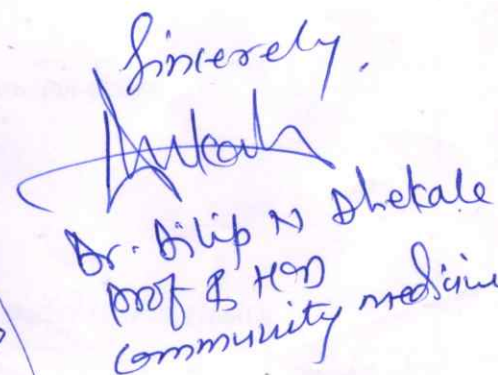 Sincerely,
Dr. Dilip N Dhekale
Prof & HOD
Community medicine